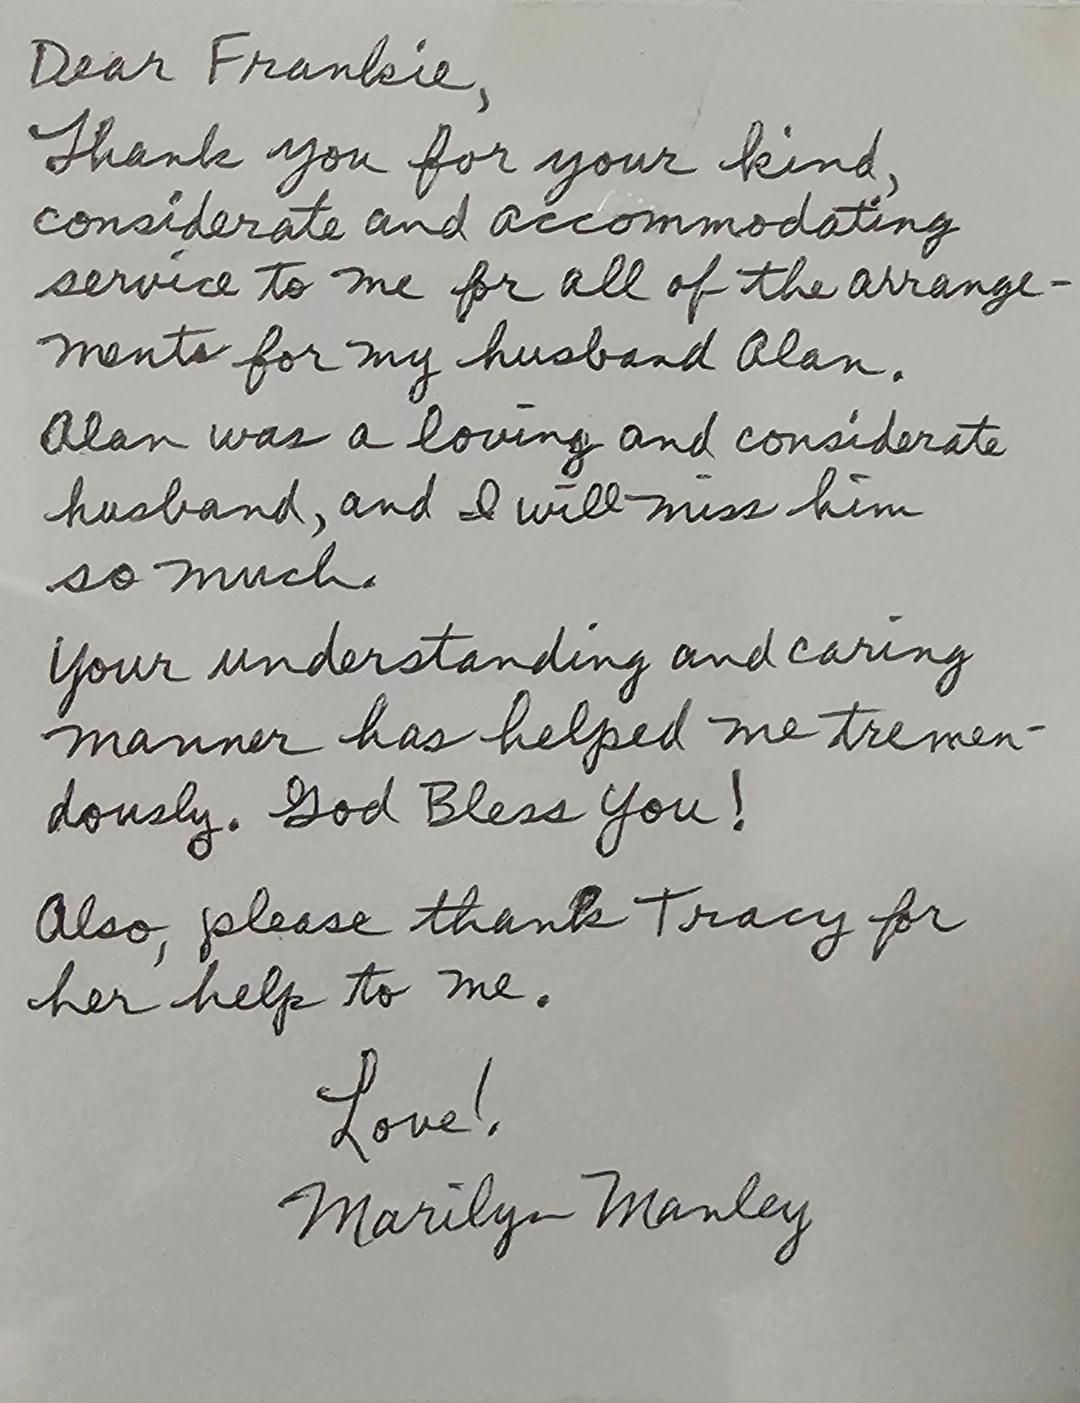 Dear Frankie,
Thank you for your kind,
considerate and accommodating
service to me for all of the arrange-
ments for my husband Alan.
Alan was a loving and considerate
husband, and I will miss him
so much.
Your understanding and caring
manner has helped me tremen-
dously. God Bless You!
Also, please thank Tracy for
her help to me.
Love!
Marilyn Manley